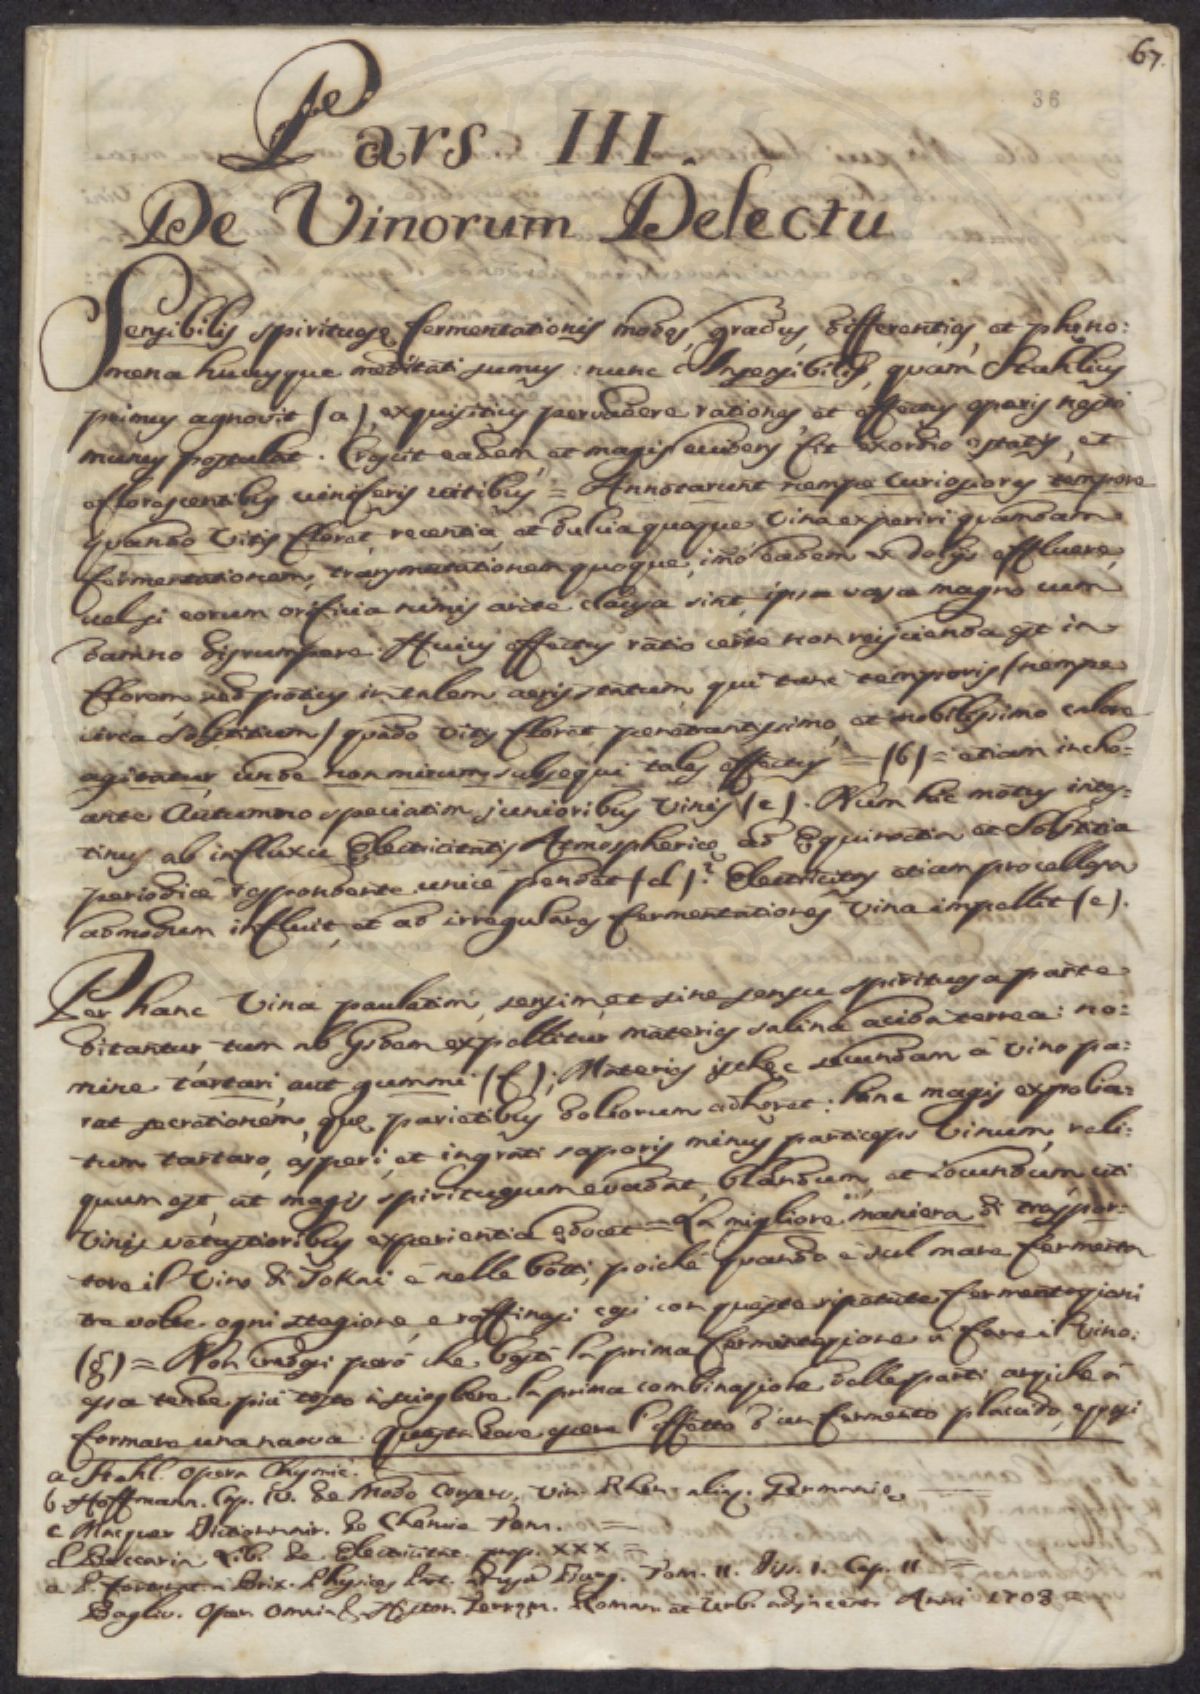 67.
36
Pars III.
De Vinorum Delectu
Sensibilis spirituosę fermentationis modos, gradus, differentias, et phęno:
mena hucusque meditati sumus: nunc Insensibilis, quam Stahlius
primus agnovit (a), exquisitius pervadere rationes, et effectus operis nostri
munus postulat. Crescit eadem, et magis evidens fit exordio ęstatis, et
efflorescentibus viniferis vitibus = Annotarunt nempe Curiosiores tempore
quando Vitis floret, recentia, et dulcia quoque Vina experiri quamdam
fermentationem, transmutationem quoque, imò eadem è doliis effluere,
vel si eorum orificia nimis arcte clausa sint, ipsa vasa magno cum
damno disrumpere. Huius effectus ratio certe non reijcienda est in
florem, sed potius in talem aeris statum, qui tunc temporis (nempe
circa Solstitium) quãdo Vitis floret, penetrantissimo, et mobilissimo calore
agitatur, unde non mirum subsequi tales effectus = (b) = etiam incho=
ante Autumno speciatim junioribus Vinis (c). Num hic motus intes=
tinus ab influxu Electricitatis Atmosphericę ad Equinoctia et Solstitia
periodicè respondente unicè pendet (d)? Electricitas etiam procellosa
admodum influit, et ad irregulares fermentationes Vina impellit (e).
Per hanc Vina paulatim, sensim, et sine sensu spirituosa parte
ditantur, tum ab ijsdem expellitur materies salina acida terrea: no:
mine tartari, aut gummi (f); Materies isthęc secundam à Vino pa:
rat secretionem, quę parietibus doliorum adhęret: hinc magis expolia:
tum tartaro, asperi, et ingrati saporis minus particeps Vinum, reli:
quum est, ut magis spirituosum evadat, blandum, et iocundum uti
Vinis vetustioribus experientia edocet = La migliore maniera di traspor:
tare il Vino di Tokai è nelle botti, poichè quando è sul mare fermenta
tre volte ogni stagione, e raffinasi così con queste ripetute fermentazioni
(g) = Non credasi però che basti la prima fermentazione à fare il Vino:
essa tende più tosto à sciogliere la prima combinazione delle parti, anziche à
formare una nuova. Questa deve essere l'effetto d'un fermento placido, e quasi
a Stahl. Opera Chymic.
b Hoffmann. Cap. IV. de Modo Conserv. Vin. Rhen. aliæq. Germanię
c Macquer Dictionnair. de Chemie Tom. =
d Beccaria Lib. de Electricitat. prop. XXX =
e Tom. II. Diss. I. Cap. II =
Bagliv. Oper. Omnia Histor. Terręm. Roman. et Urb. adjacent. Anni 1703